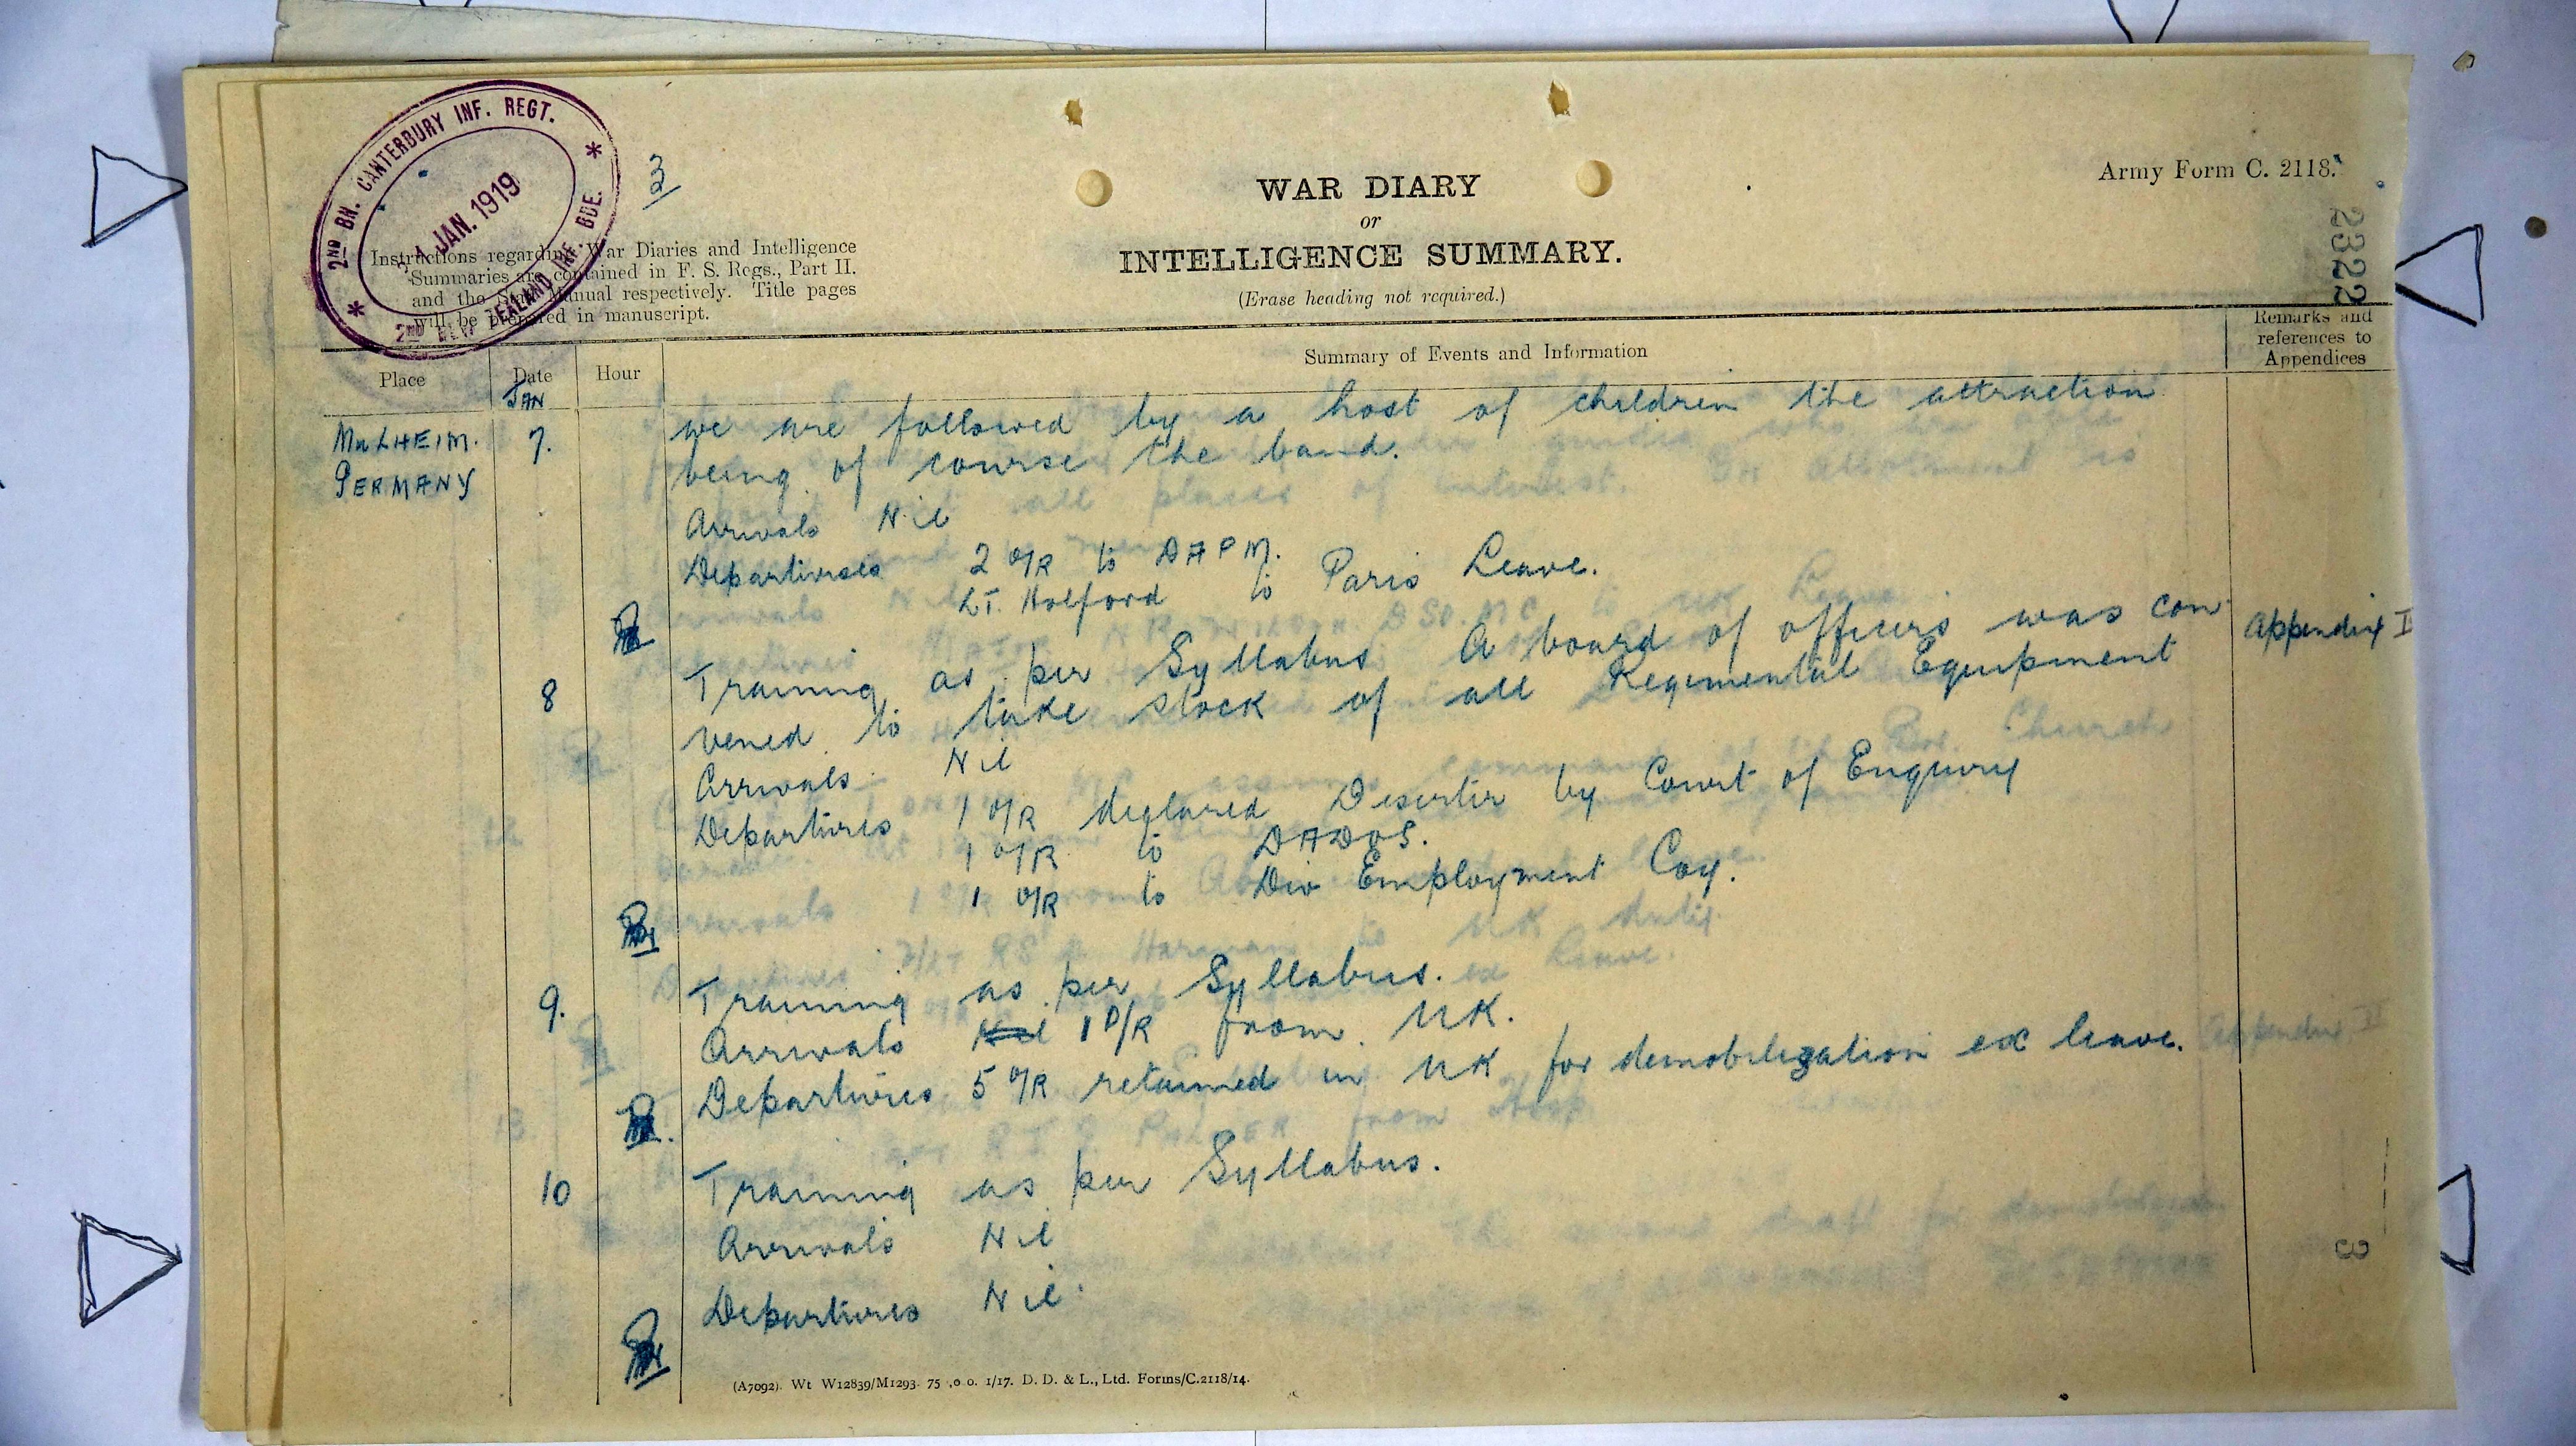 2ND BN. CANTERBURY INF. REGT.
JAN. 1919
2ND NEW ZEALAND INF. BDE.
3
Army Form C. 2118.
WAR DIARY
or
INTELLIGENCE SUMMARY.
(Erase heading not required.)
Instructions regarding War Diaries and Intelligence
Summaries are contained in F. S. Regs., Part II.
and the Staff Manual respectively. Title pages
will be prepared in manuscript.
2322
Place Date Hour Summary of Events and Information Remarks and
references to
Appendices
JAN
MuLHEIM. 7. we are followed by a host of children the attraction
GERMANY being of course the band.
Arrivals Nil
Departures 2 O/R to DAPM.
LT. Holford to Paris Leave.
8 Training as per Syllabus A board of officers was con Appendix I
vened to take stock of all Regimental Equipment
Arrivals Nil
Departures 1 O/R declared Deserter by Court of Enquiry
1 O/R to DADOS.
1 O/R to Div Employment Coy.
9. Training as per Syllabus.
Arrivals Nil 1 O/R from UK.
Departures 5 O/R retained in UK for demobilization ex leave.
10 Training as per Syllabus.
Arrivals Nil
Departures Nil.
3
(A7092). Wt W12839/M1293. 75 ,0 0. 1/17. D. D. & L., Ltd. Forms/C.2118/14.